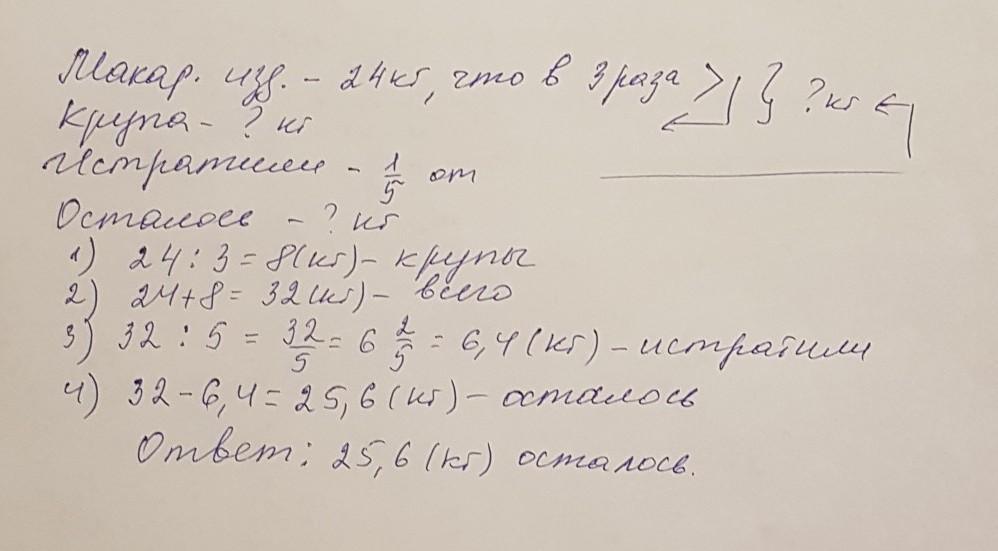 Макар. изд. – 24кг, что в 3 раза > } ? кг
Крупа – ? кг
Истратили – 1/5 от
Осталось – ? кг
1) 24 : 3 = 8(кг) – крупы
2) 24+8 = 32(кг) – всего
3) 32 : 5 = 32/5 = 6 2/5 = 6,4 (кг) – истратили
4) 32 – 6,4 = 25,6 (кг) – осталось
Ответ: 25,6 (кг) осталось.